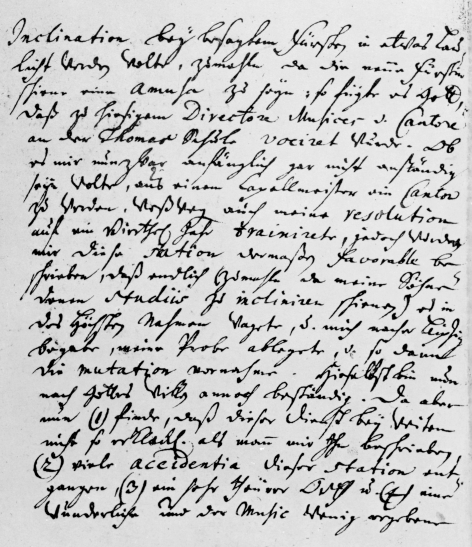 Inclination bey besagtem Fürsten in etwas lau-
licht werden wolte, zumahln da die neüe Fürstin
schiene eine amusa zu seyn: so fügte es Gott,
daß zu hiesigem Directore Musices u. Cantore
an der Thomas Schule vociret wurde. Ob
es mir nun zwar anfänglich gar nicht anständig
seyn wolte, aus einem Capellmeister ein Cantor
zu werden. Weßwegen auch meine resolution
auf ein vierthel Jahr trainirete, jedoch wurde
mir diese station dermaßen favorable be-
schrieben, daß endlich (zumahln da meine Söhne
denen studiis zu incliniren schienen) es in
des Höchsten Nahmen wagete, u. mich nacher Leipzig
begabe, meine Probe ablegete, u. so dann
die mutation vornahme. Hieselbst bin nun
nach Gottes Willen annoch beständig. Da aber
nun (1) finde, daß dieser dienst bey weitem
nicht so erklecklich als mann mir Ihn beschrieben,
(2) viele accidentia dieser station ent-
gangen, (3) ein sehr theürer Orth u. (4) eine
wunderliche und der Music wenig ergebene